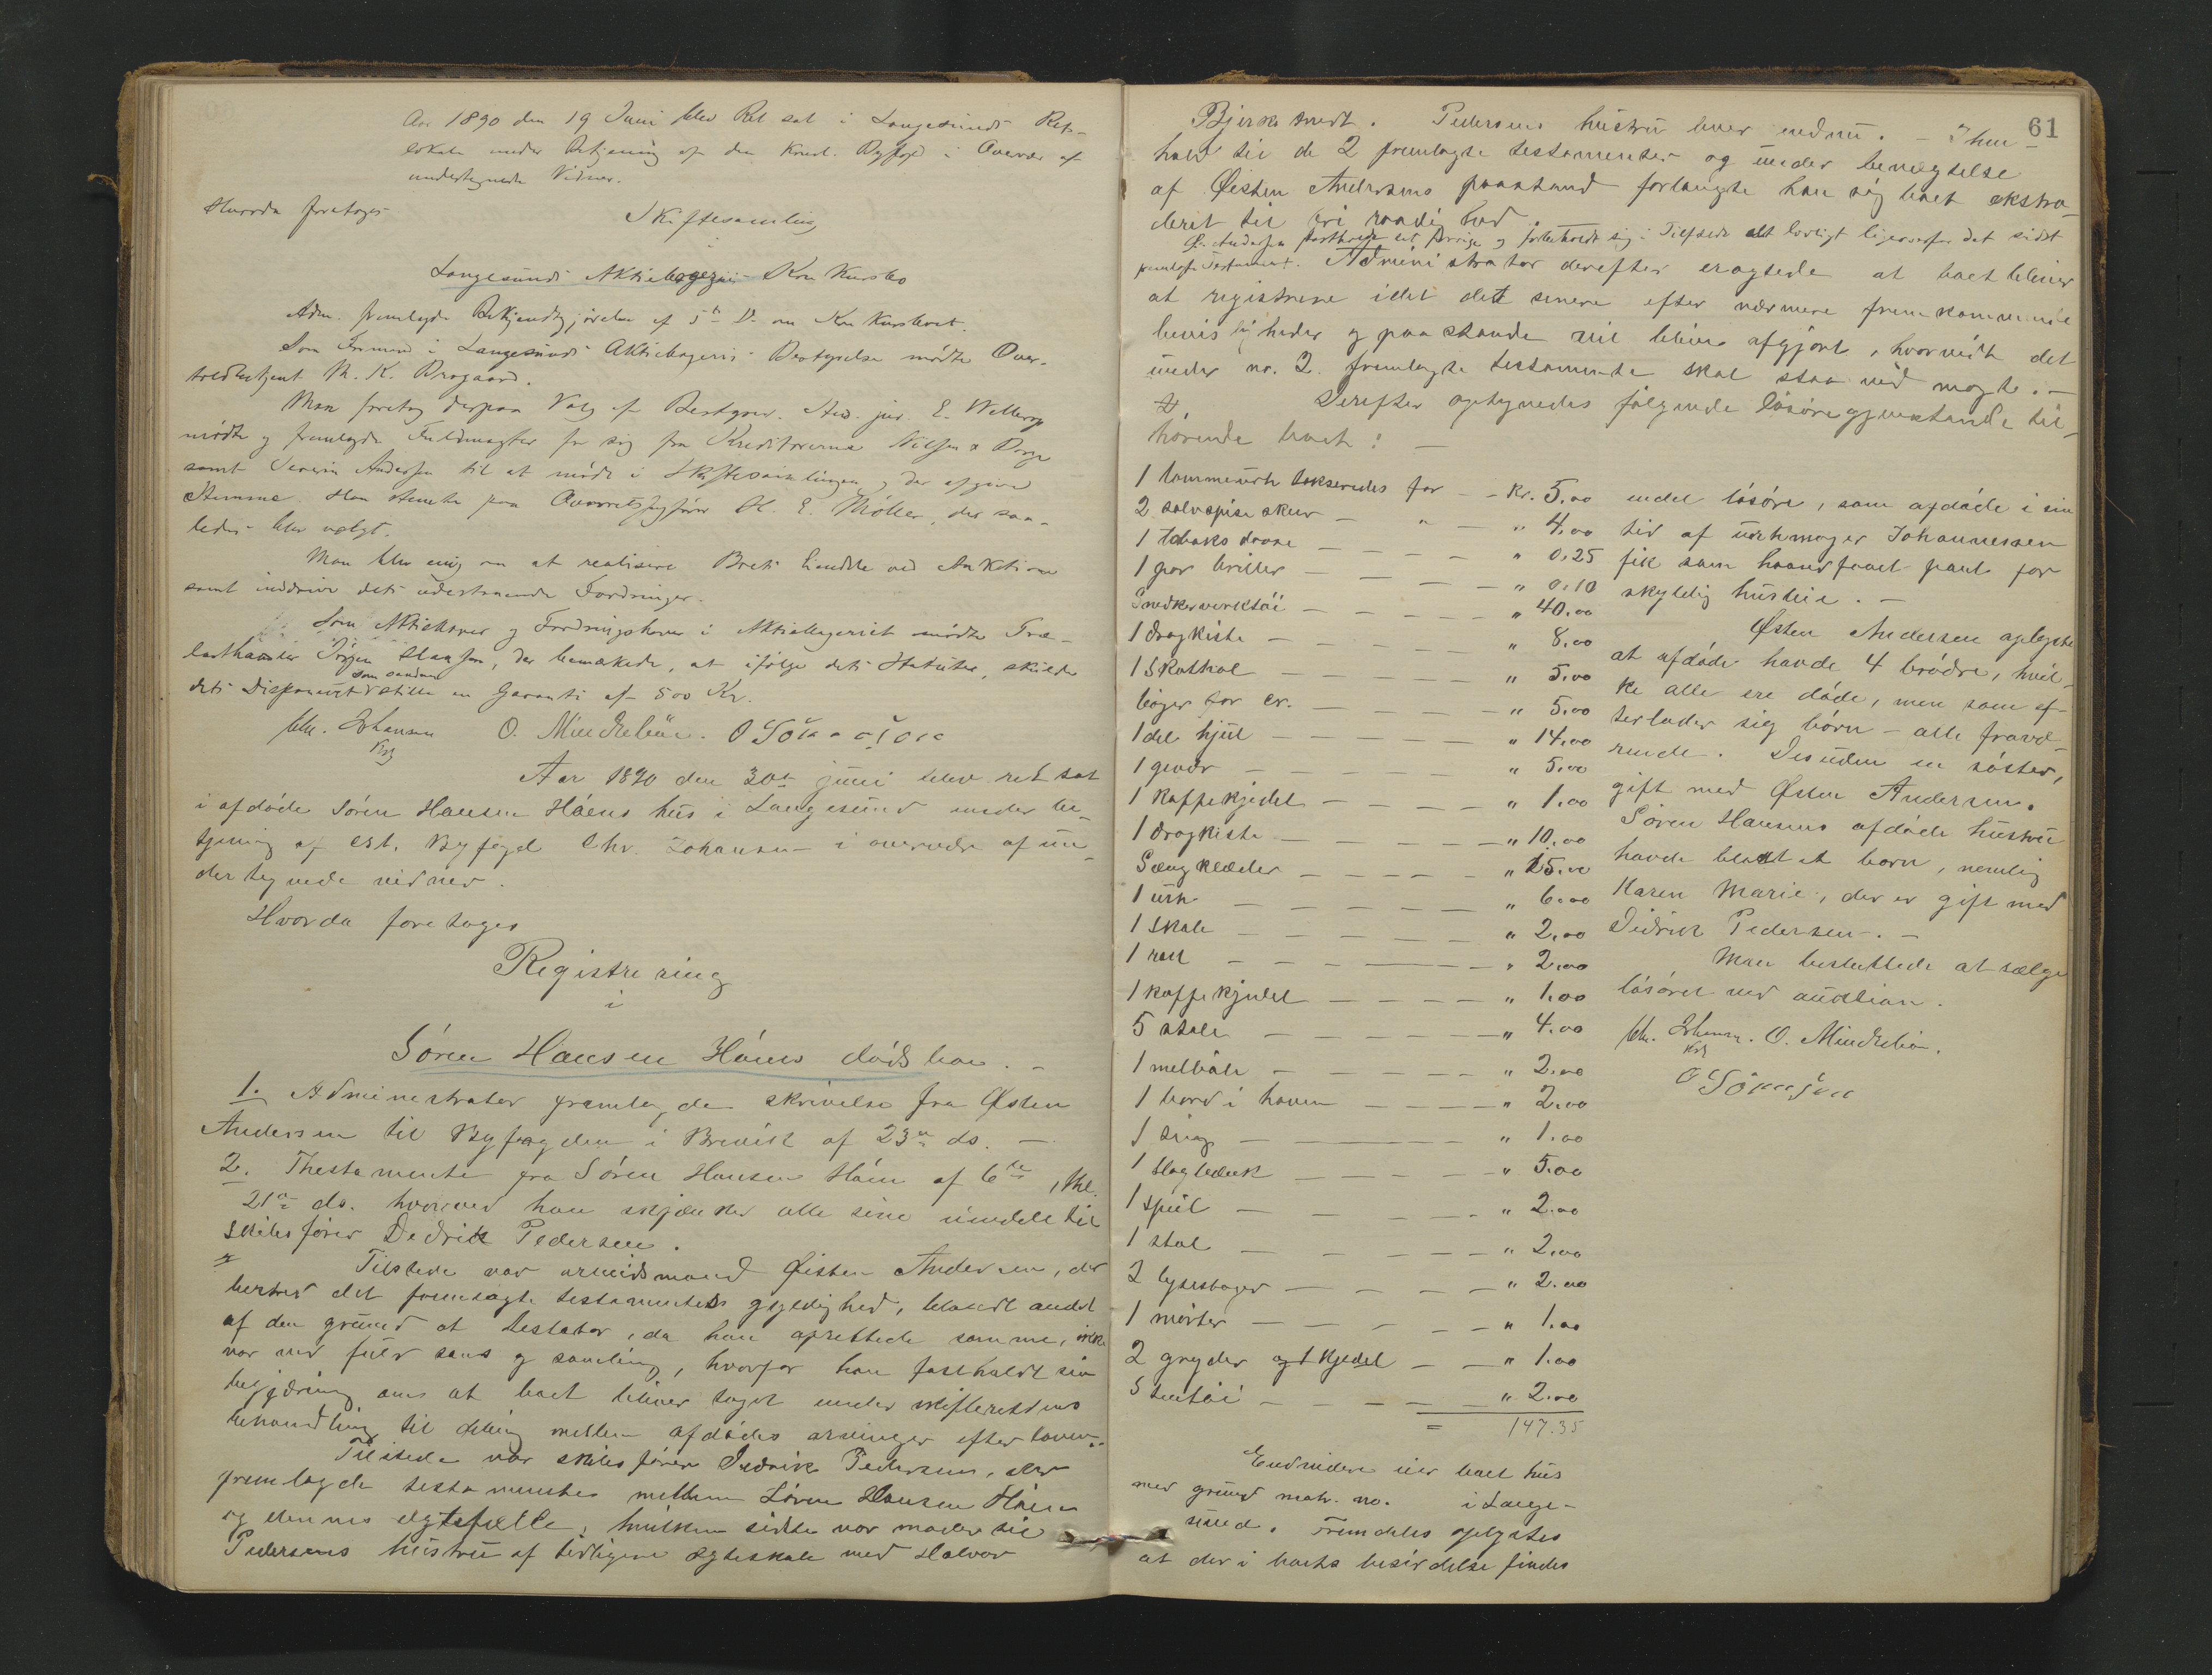 Aar 1890 den 19 Juni blev Ret sat i Langesunds Rets-
lokale under Betjening af den Konst. Byfogd i Overvær af
undertegnede Vidner.
Hvorda foretoges
Skiftesamling
i
Langesunds Aktiebageris Konkursbo
Adm. fremlagde Bekjendtgjørelse af 5te ds. om Konkursboet.
Som Formand i Langesunds Aktiebageris Bestyrelse mødte Over-
toldbetjent M. K. Brogaard.
Man foretog derpaa Valg af Bestyrer. Aud. jur. E.
mødte og fremlagde Fuldmagter for sig fra Kreditorerne Nilsen &
samt Severin Andersen til at møde i Skiftesamlingen og der afgive
Stemme. Han stemte paa Overretssagfører H. E. Møller, der saa-
ledes blev valgt.
Man blev enig om at realisere Boets Eiendele ved Auktion
samt inddrive dets udestaaende Fordringer.
Som Aktiehaver og Fordringshaver i Aktiebageriet mødte Træ-
lasthandler Jørgen Olafsen, der bemærkede, at ifølge dets Statuter, skulde
dets Disponent som saadan stille en Garanti af 500 Kr.
Chr. Johansen O.
Kst
Aar 1890 den 30te juni blev ret sat
i afdøde Sören Hansen Höens hus i Langesund under be-
tjening af cst. Byfogd Chr. Johansen i overvær af un-
dertegnede vidner.
Hvorda foretoges
Registrering
i
Sören Hansen Höens dödsbo. -
1. Administrator fremlagde skrivelse fra Østen
Andersen til Byfogden i Brevik af 23de ds. -
2. Thestamente fra Sören Hansen Höen af 6te,
21de ds. hvorved han skjænker alle sine eiendele til
skibsfører Dedrik Pedersen.
Tilstede var arbeidsmand Øisten Andersen, der
bestred det fremlagte testamentes gyldighed, blandt andet
af den grund at testator, da han oprettede samme, ikke
var ved fuld sans og samling, hvorfor han fastholdt sin
begjæring om at boet bliver taget under skifterettens
behandling til deling mellem afdødes arvinger efter loven.
Tilstede var skibsfører Didrik Pedersen, der
fremlagde testamentet mellem Sören Hansen Höen
og dennes egtefælle, hvilken sidste var moder til
Pedersens hustru af tidligere egteskab med Halvor
61
Bjerketvedt. Pedersens hustru lever endnu. - I hen-
hold til de 2 fremlagte testamenter og under benægtelse
af Øisten Andersens paastand forlangte han sig boet ekstra-
deret til fri raadighed.
Ø. Andersen fastholdt det øvrige og forbeholdt sig i Tilfælde alt lovligt ligeoverfor det sidst
fremlagte Testament. Administrator derefter eragtede at boet bliver
at registrere idet dette senere efter nærmere fremkommende
bevisligheder og paastande vil blive afgjort, hvorvidt det
under no. 2 fremlagte testamente skal staa ved magt. -
Derefter optegnedes følgende løsøregjenstande til-
hørende boet: -
1 lommeurh takseredes for - - Kr. 5.00
2 sølvspiseskeer - " - " 4.00
1 tobaksdaase - - - - " 0.25
1 par briller - - - - " 0.10
Snedkerverktöi - - - - " 40.00
1 dragkiste - - - - " 8.00
1 skathol - - - - " 5.00
bøger for cr. - - - - " 5.00
1 del hjul - - - - " 14.00
1 gevær - - - - " 5.00
1 kaffekjedel - - - - " 1.00
1 dragkiste - - - - " 10.00
Sengklæder - - - - " 15.00
1 urh - - - - " 6.00
1 skab - - - - " 2.00
1 rok - - - - " 2.00
1 kaffekjedel - - - - " 1.00
5 stole - - - - " 4.00
1 melbøle - - - - " 2.00
1 bord i haven - - - " 2.00
1 - - - " 1.00
1 slagbænk - - - - " 5.00
1 speil - - - - " 2.00
1 stol - - - - " 2.00
2 lysestager - - - - " 2.00
1 morter - - - - " 1.00
2 gryder og 1 kjedel - - " 1.00
Stentöi - - - - " 2.00
= 147.35
Endvidere eier boet hus
med grund matr. no. i Lange-
sund. Fremdeles oplystes
at der i boets besiddelse findes
endel løsøre, som afdøde i sin
tid af urhmager Johannessen
fik som haandfaaet pant for
skyldig husleie. -
Østen Andersen oplyste
at afdøde havde 4 brødre, hvil-
ke alle ere døde, men som ef-
terlader sig børn - alle fravæ-
rende. Desuden en søster,
gift med Østen Andersen.
Sören Hansens afdøde hustru
havde blot et barn, nemlig
Karen Marie, der er gift med
Didrik Pedersen. -
Man besluttede at sælge
løsøret ved auction.
Chr. Johansen. O.
Kst